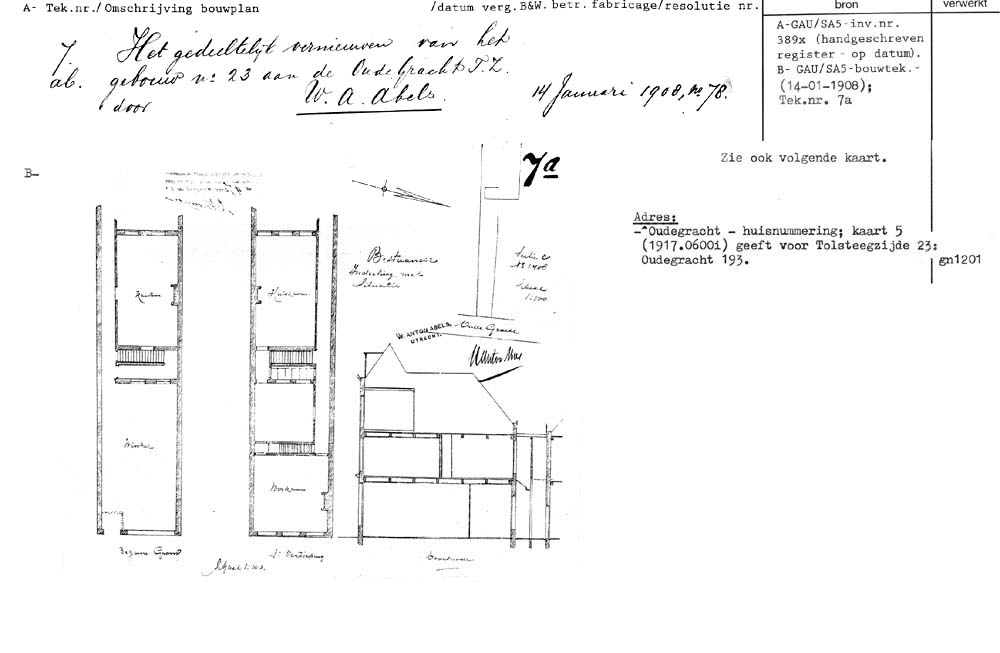 A- Tek.nr./Omschrijving bouwplan /datum verg.B&W. betr. fabricage/resolutie nr. bron verwerkt
7. Het gedeeltelijk vernieuwen van het
ab. gebouw no 23 aan de Oude Gracht T.Z.
door W. A. Abels. 14 Januari 1908, no 78.
A-GAU/SA5-inv.nr.
389x (handgeschreven
register - op datum).
B- GAU/SA5-bouwtek.-
(14-01-1908);
Tek.nr. 7a
Zie ook volgende kaart.
B-
7a
Adres:
-^Oudegracht - huisnummering; kaart 5
(1917.0600i) geeft voor Tolsteegzijde 23:
Oudegracht 193.
gn1201
Bestaande
Indeeling met
Situatie
Schaal
1:500
W. ANTON ABELS.
UTRECHT.
Oude Gracht
Keuken
Huiskamer
Winkel
Begane Grond
1e Verdieping
Schaal 1:100.
Doorsnede